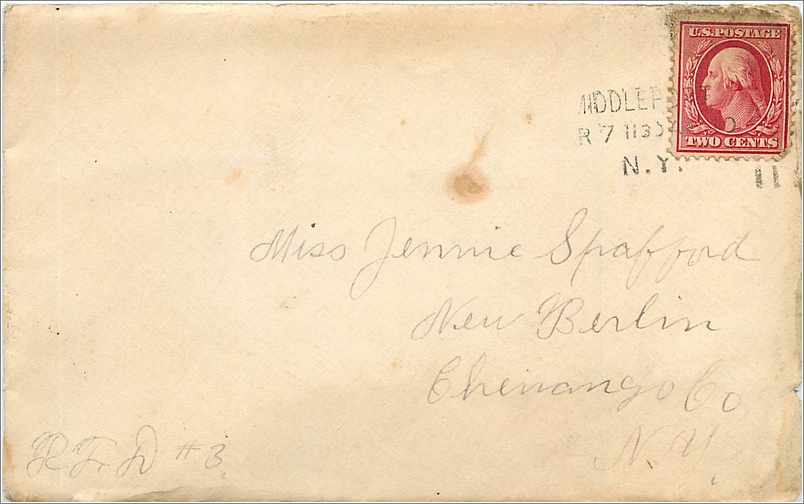 U.S. POSTAGE
TWO CENTS
N.Y.
Miss Jennie Spafford
New Berlin
Chenango Co
N.Y.
R.F.D #3